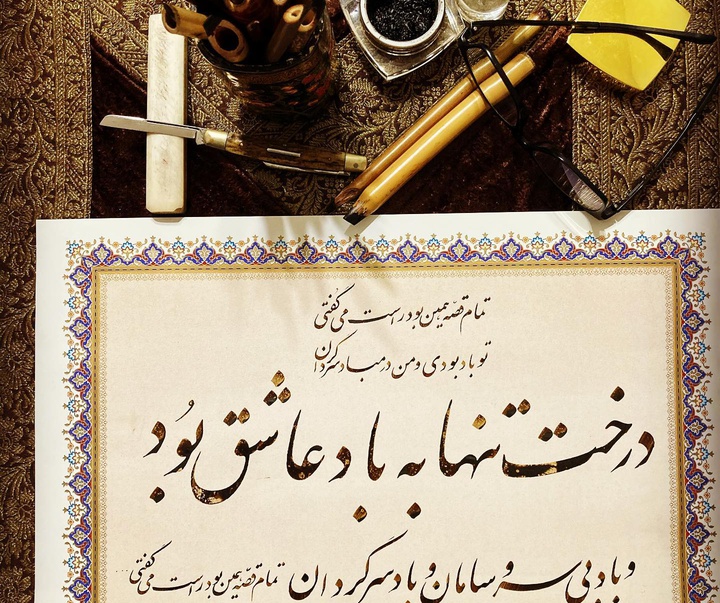 تمام قصّه همین بود راست می گفتی
تو باد بودی و من در مباد سرگردان
درخت تنها به باد عاشق بُود
و باد بی سر و سامان و باد سرگردان تمام قصّه همین بود راست می گفتی ...